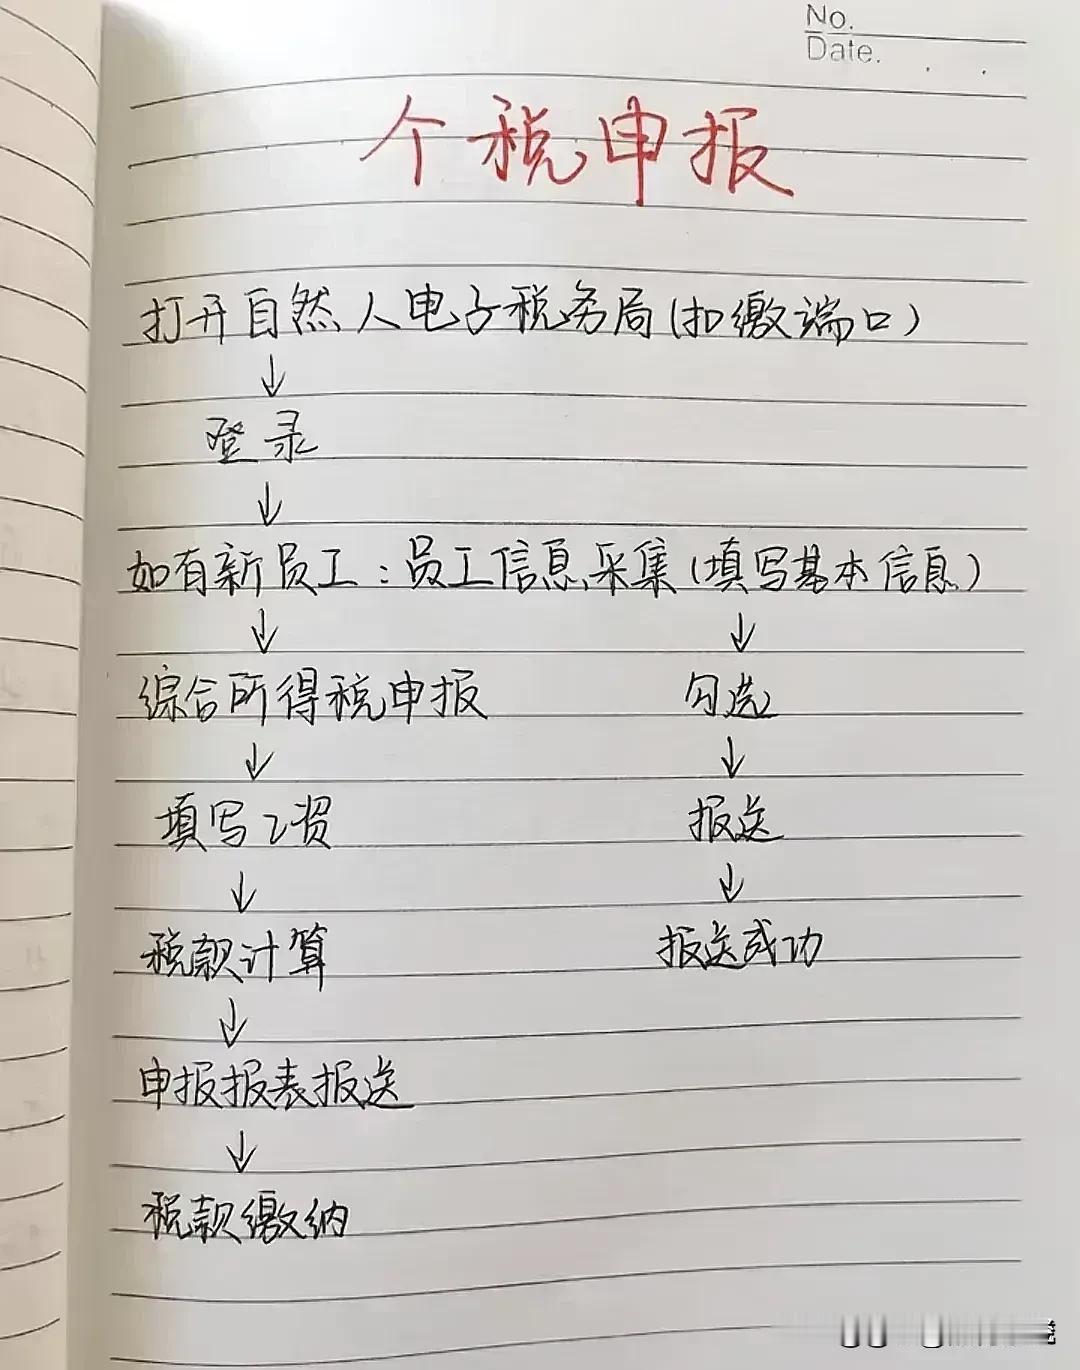 No.
Date.
个税申报
打开自然人电子税务局(扣缴端口)
↓
登录
↓
如有新员工:员工信息采集(填写基本信息)
↓ ↓
综合所得税申报 勾选
↓ ↓
填写工资 报送
↓ ↓
税款计算 报送成功
↓
申报报表报送
↓
税款缴纳